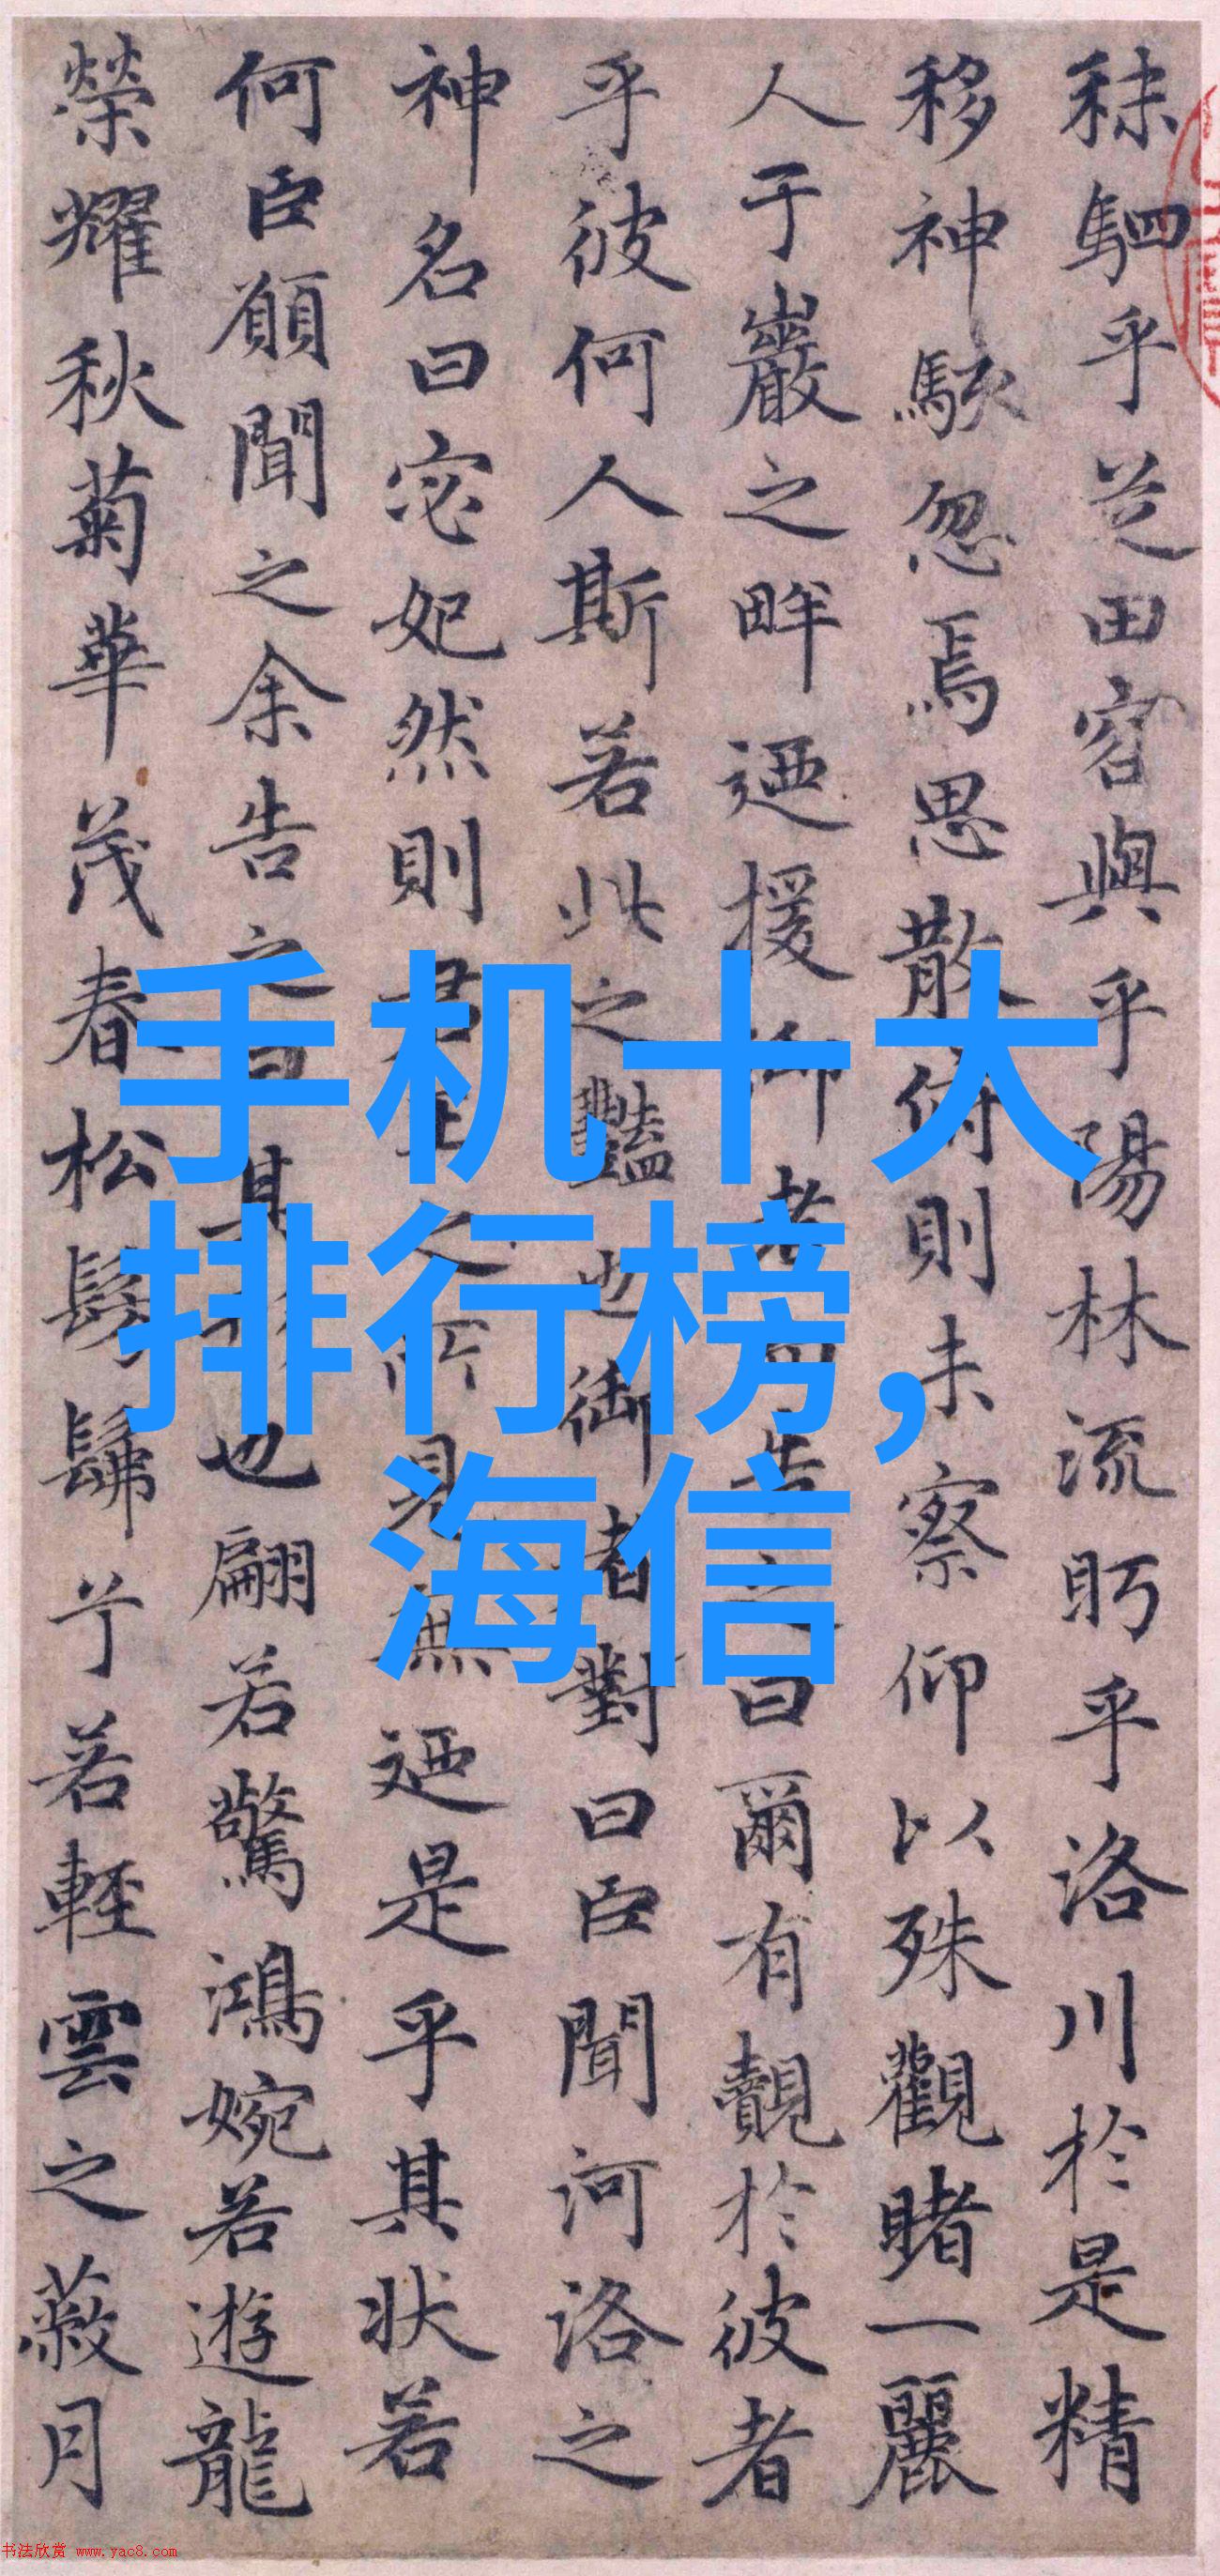 秣駟乎芝田容與乎陽林流眄乎洛川於是精
移神駭忽焉思散俯則未察仰以殊觀睹一麗
人于巖之畔迺援御者而告之曰爾有覿於彼者
乎彼何人斯若此之豔也御者對曰臣聞河洛之
神名曰宓妃然則君王之所見無迺是乎其狀若
何臣願聞之余告之曰其形也翩若驚鴻婉若遊龍
榮耀秋菊華茂春松髣髴兮若輕雲之蔽月
手机十大
排行榜,
海信
书法欣赏 www.yac8.com